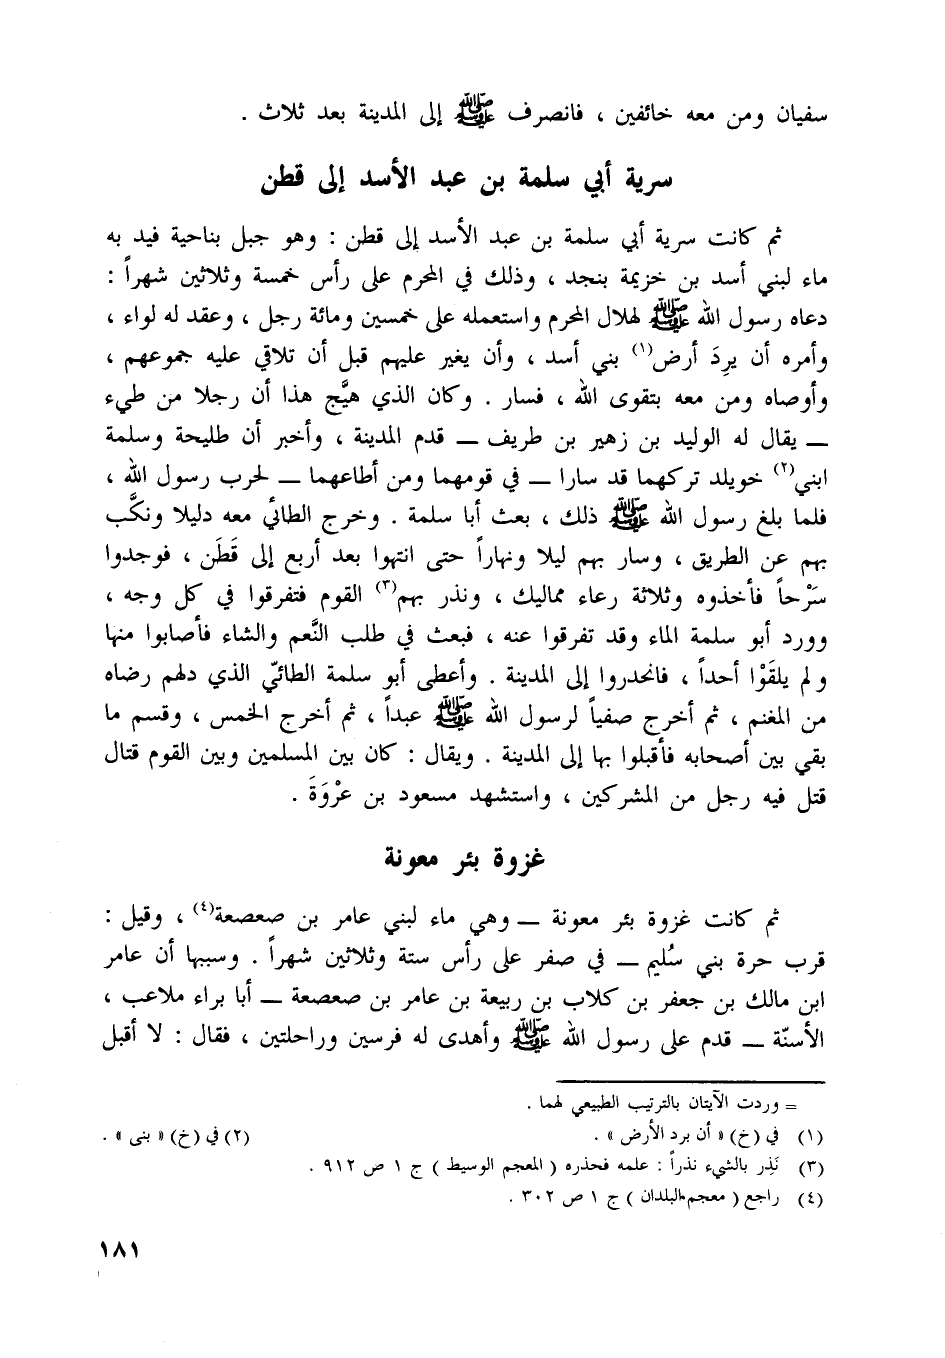 سفيان ومن معه خائفين ، فانصرف ﷺ إلى المدينة بعد ثلاث .
سرية أبي سلمة بن عبد الأسد إلى قطن
ثم كانت سرية أبي سلمة بن عبد الأسد إلى قطن : وهو جبل بناحية فيد به
ماء لبني أسد بن خزيمة بنجد ، وذلك في المحرم على رأس خمسة وثلاثين شهراً :
دعاه رسول الله ﷺ لهلال المحرم واستعمله على خمسين ومائة رجل ، وعقد له لواء ،
وأمره أن يرِدَ أرض(١) بني أسد ، وأن يغير عليهم قبل أن تلاقي عليه جموعهم ،
وأوصاه ومن معه بتقوى الله ، فسار . وكان الذي هيَّج هذا أن رجلا من طيء
ــ يقال له الوليد بن زهير بن طريف ــ قدم المدينة ، وأخبر أن طليحة وسلمة
ابني(٢) خويلد تركهما قد سارا ــ في قومهما ومن أطاعهما ــ لحرب رسول الله ،
فلما بلغ رسول الله ﷺ ذلك ، بعث أبا سلمة . وخرج الطائي معه دليلا ونكَّب
بهم عن الطريق ، وسار بهم ليلا ونهاراً حتى انتهوا بعد أربع إلى قَطَن ، فوجدوا
سَرْحاً فأخذوه وثلاثة رعاء مماليك ، ونذر بهم(٣) القوم فتفرقوا في كل وجه ،
وورد أبو سلمة الماء وقد تفرقوا عنه ، فبعث في طلب النَّعم والشاء فأصابوا منها
ولم يلقَوْا أحداً ، فانحدروا إلى المدينة . وأعطى أبو سلمة الطائيّ الذي دلهم رضاه
من المغنم ، ثم أخرج صفياً لرسول الله ﷺ عبداً ، ثم أخرج الخمس ، وقسم ما
بقي بين أصحابه فأقبلوا بها إلى المدينة . ويقال : كان بين المسلمين وبين القوم قتال
قتل فيه رجل من المشركين ، واستشهد مسعود بن عرْوَةَ .
غزوة بئر معونة
ثم كانت غزوة بئر معونة ــ وهي ماء لبني عامر بن صعصعة(٤) ، وقيل :
قرب حرة بني سُليم ــ في صفر على رأس ستة وثلاثين شهراً . وسببها أن عامر
ابن مالك بن جعفر بن كلاب بن ربيعة بن عامر بن صعصعة ــ أبا براء ملاعب ،
الأسنّة ــ قدم على رسول الله ﷺ وأهدى له فرسين وراحلتين ، فقال : لا أقبل
= وردت الآيتان بالترتيب الطبيعي لهما .
(١) في (خ) « أن برد الأرض » . (٢) في (خ) « بنى » .
(٣) نَذِر بالشيء نذراً : علمه فحذره ( المعجم الوسيط ) ج ١ ص ٩١٢ .
(٤) راجع ( معجم البلدان ) ج ١ ص ٣٠٢ .
١٨١